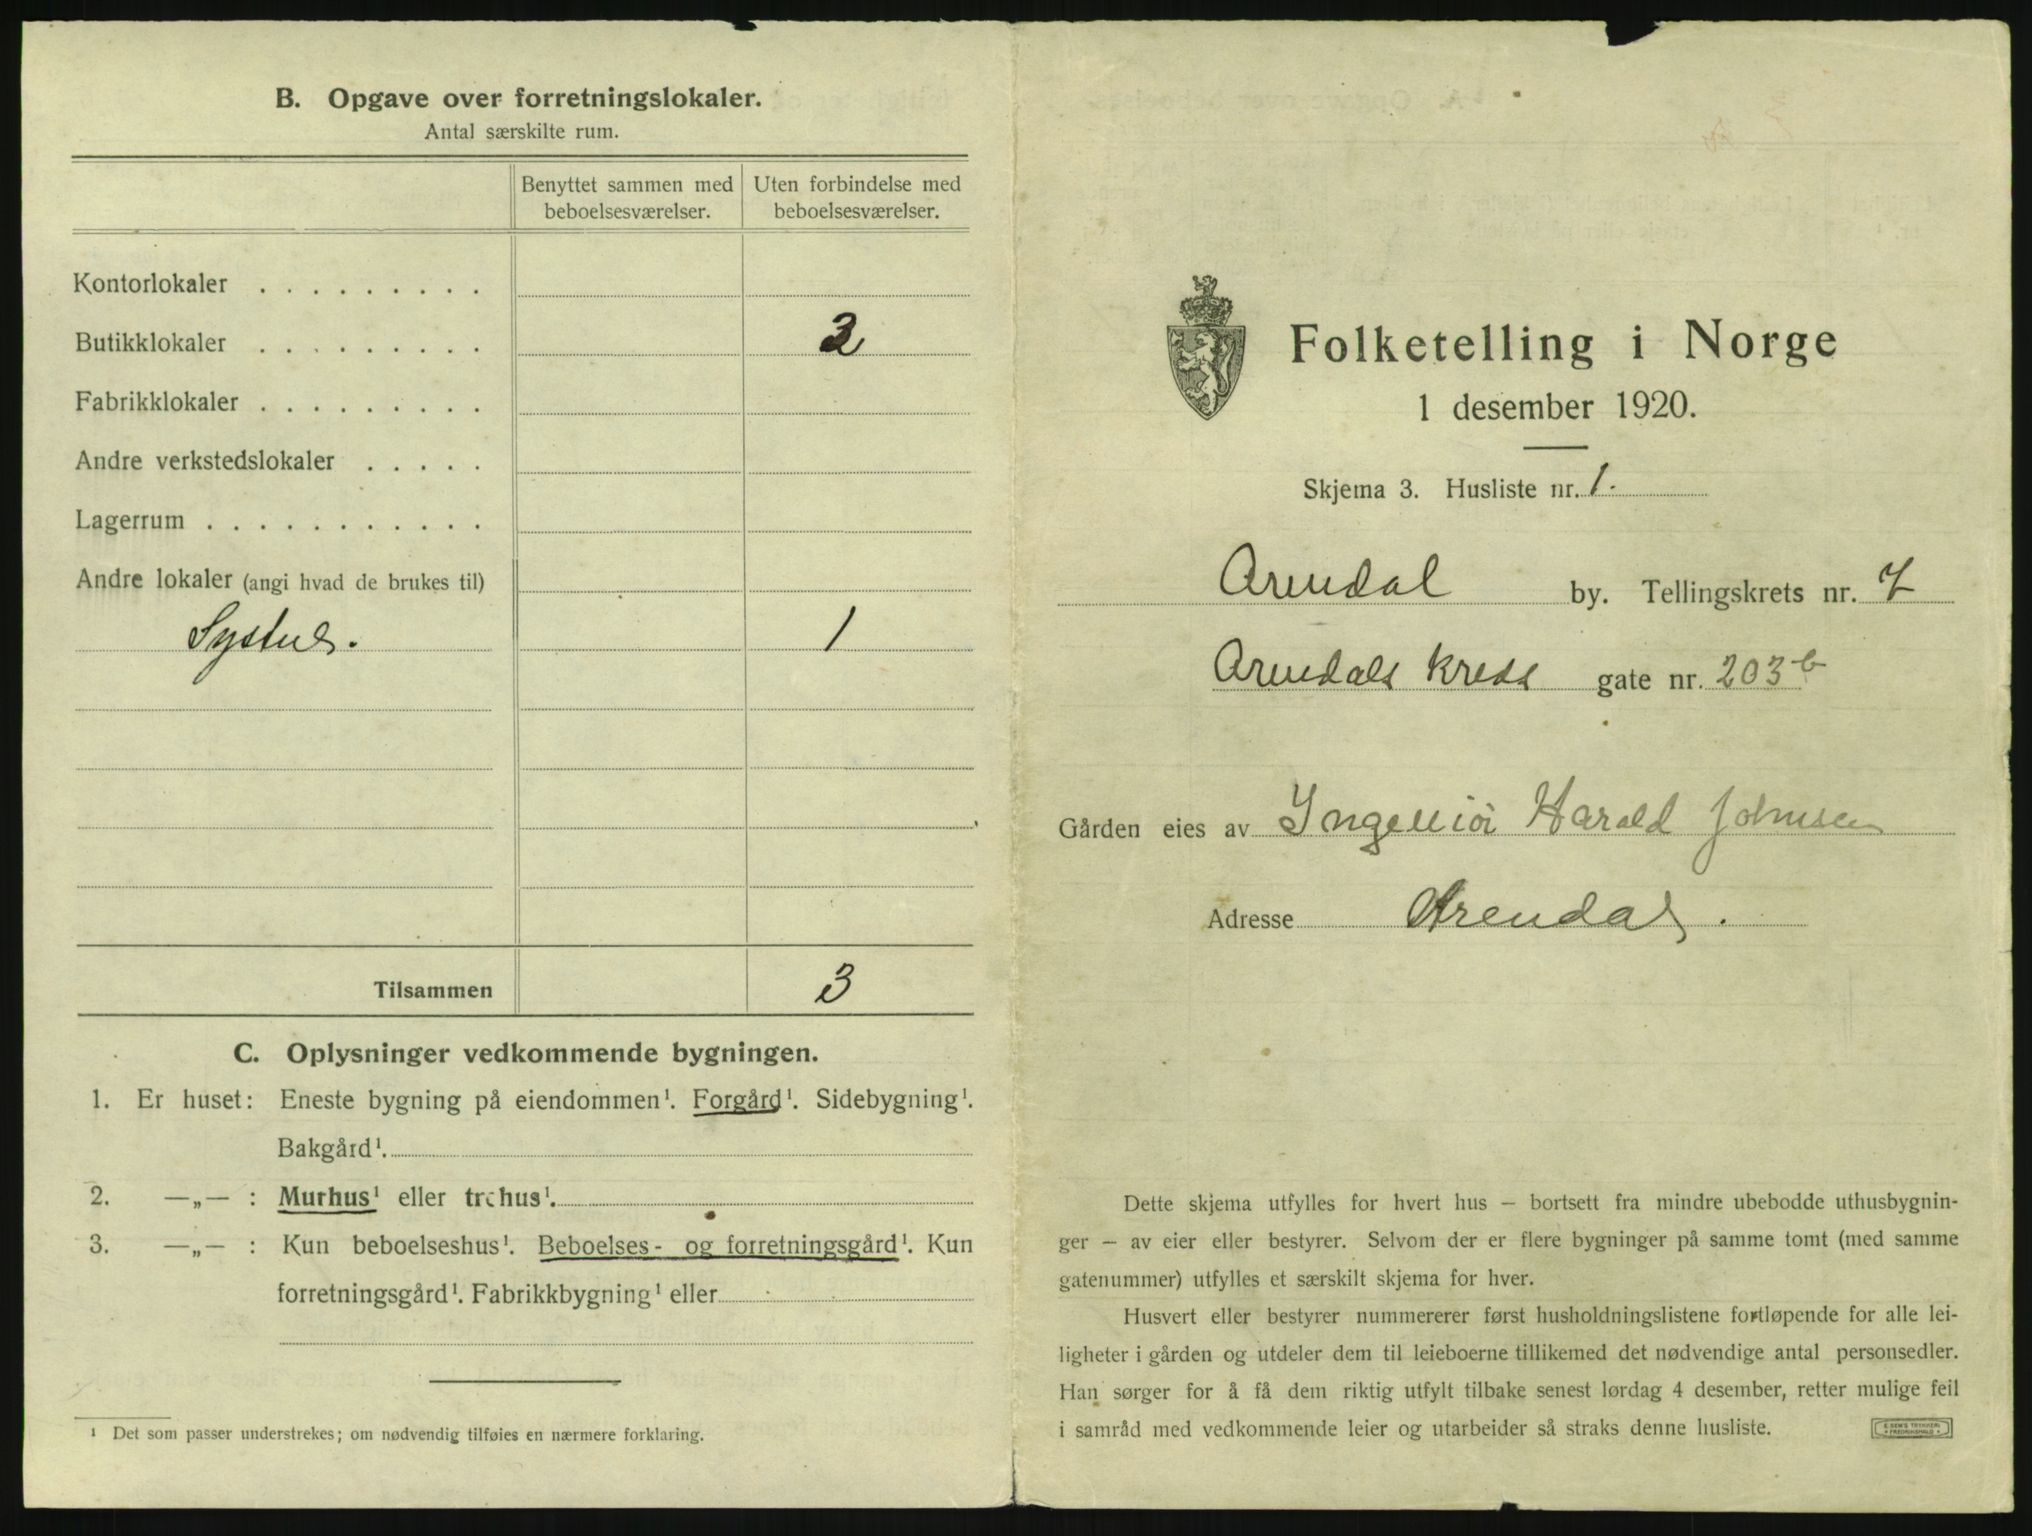 B. Opgave over forretningslokaler.
Antal særskilte rum.
Benyttet sammen med beboelsesværelser.
Uten forbindelse med beboelsesværelser.
Kontorlokaler . . . . . . . . .
Butikklokaler . . . . . . . . . 2
Fabrikklokaler . . . . . . . . .
Andre verkstedslokaler . . . . .
Lagerrum . . . . . . . . . . .
Andre lokaler (angi hvad de brukes til)
Systue. 1
Tilsammen 3
C. Oplysninger vedkommende bygningen.
1. Er huset: Eneste bygning på eiendommen¹. Forgård¹. Sidebygning¹.
Bakgård¹.
2. —„— : Murhus¹ eller trehus¹.
3. —„— : Kun beboelseshus¹. Beboelses- og forretningsgård¹. Kun
forretningsgård¹. Fabrikkbygning¹ eller
¹ Det som passer understrekes; om nødvendig tilføies en nærmere forklaring.
Folketelling i Norge
1 desember 1920.
Skjema 3. Husliste nr. 1.
Arendal by. Tellingskrets nr. 7
Arendals kreds gate nr. 203 b
Gården eies av Ingeniør Harald Johnsen
Adresse Arendal.
Dette skjema utfylles for hvert hus – bortsett fra mindre ubebodde uthusbygnin-
ger – av eier eller bestyrer. Selvom der er flere bygninger på samme tomt (med samme
gatenummer) utfylles et særskilt skjema for hver.
Husvert eller bestyrer nummererer først husholdningslistene fortløpende for alle lei-
ligheter i gården og utdeler dem til leieboerne tillikemed det nødvendige antal personsedler.
Han sørger for å få dem riktig utfylt tilbake senest lørdag 4 desember, retter mulige feil
i samråd med vedkommende leier og utarbeider så straks denne husliste.